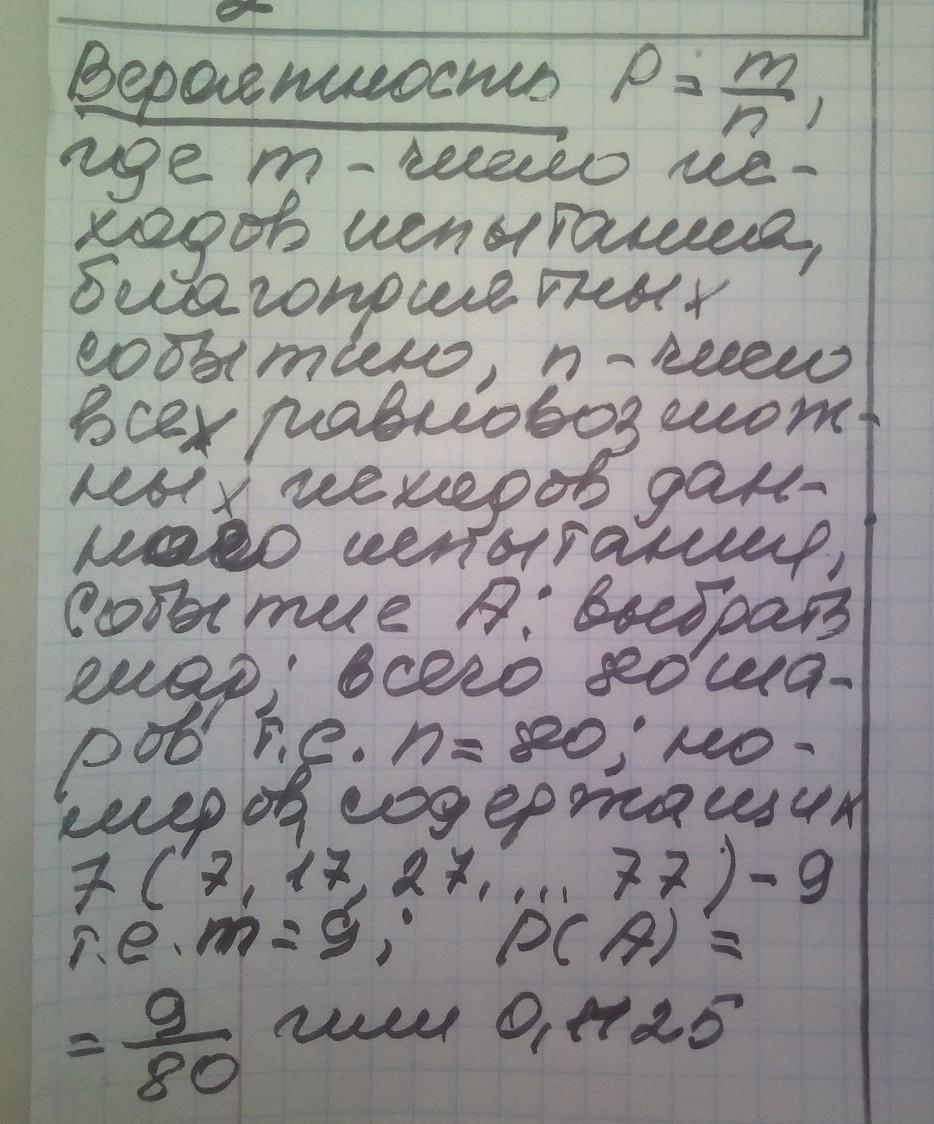 Вероятность P = m/n,
где m - число ис-
ходов испытания,
благоприятных
событию, n - число
всех равновозмож-
ных исходов дан-
ного испытания,
событие A: выбрать
шар; всего 80 ша-
ров т.е. n = 80; но-
меров, содержащих
7 (7, 17, 27, ... 77) - 9
т.е. m = 9; P(A) =
= 9/80 или 0,1125